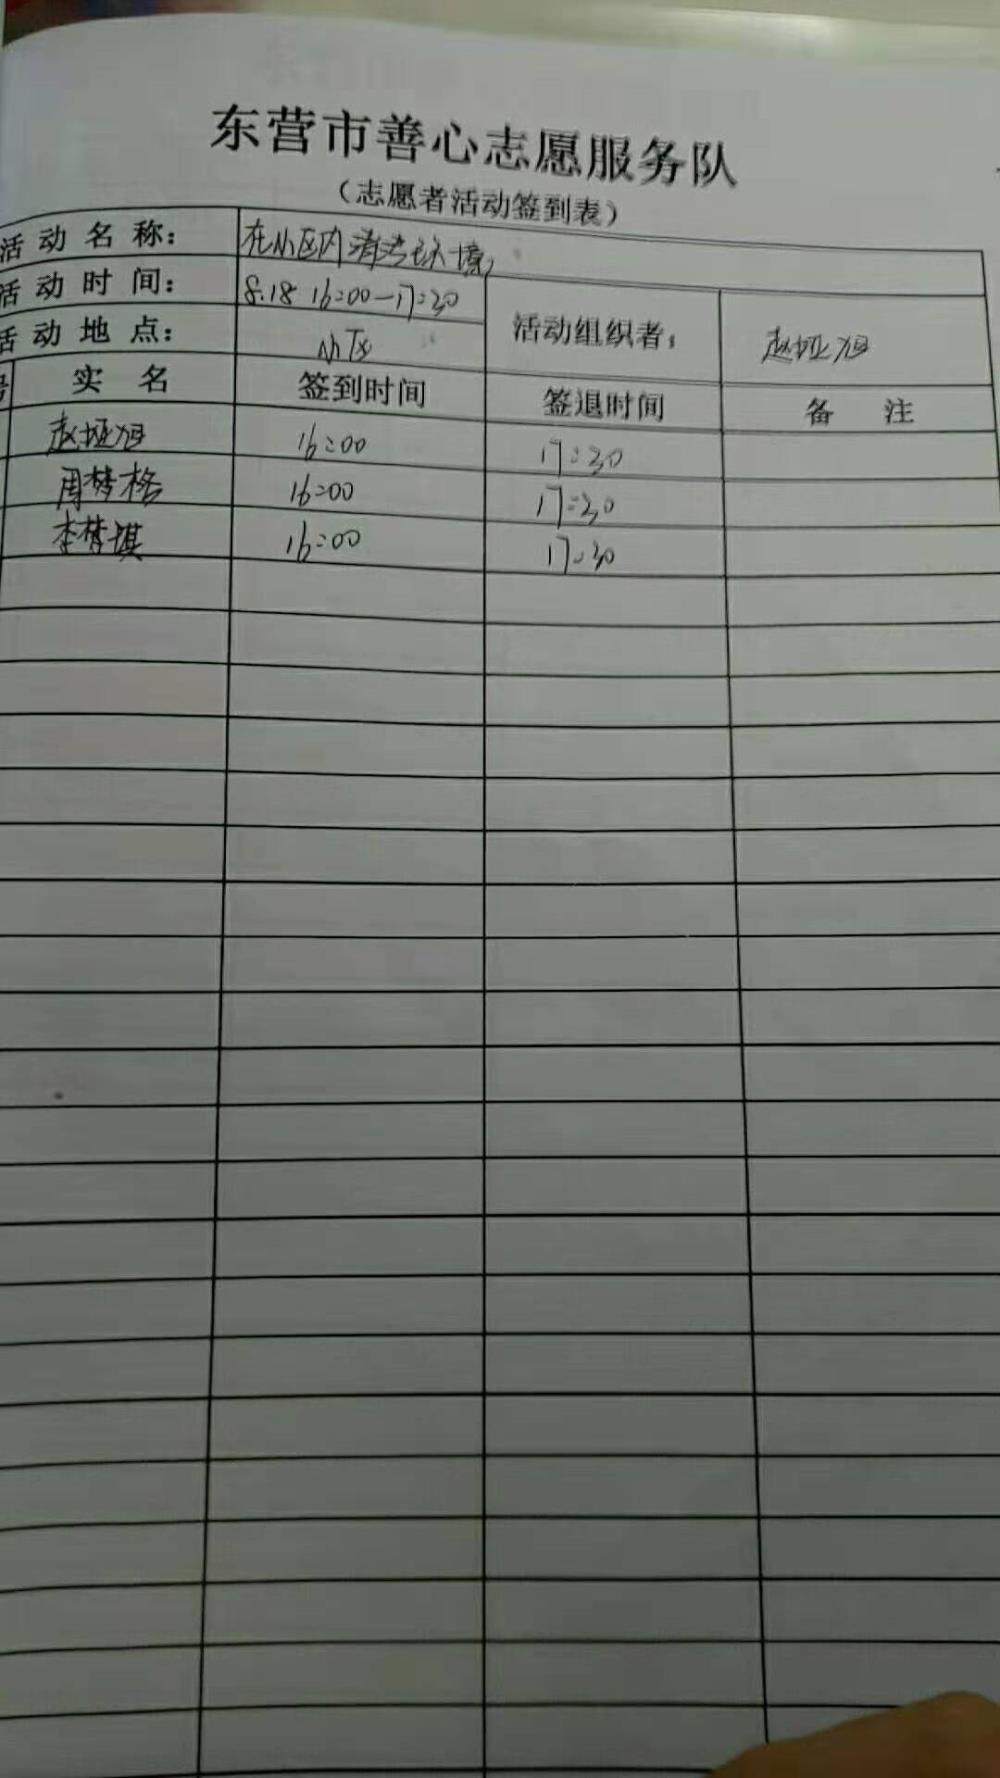 东营市善心志愿服务队
（志愿者活动签到表）
活动名称： 在小区内清洁环境
活动时间： 8.18 16:00—17:30
活动地点： 小区 活动组织者： 赵垭旭
实名 签到时间 签退时间 备注
赵垭旭 16:00 17:30
周梦格 16:00 17:30
李梦琪 16:00 17:30